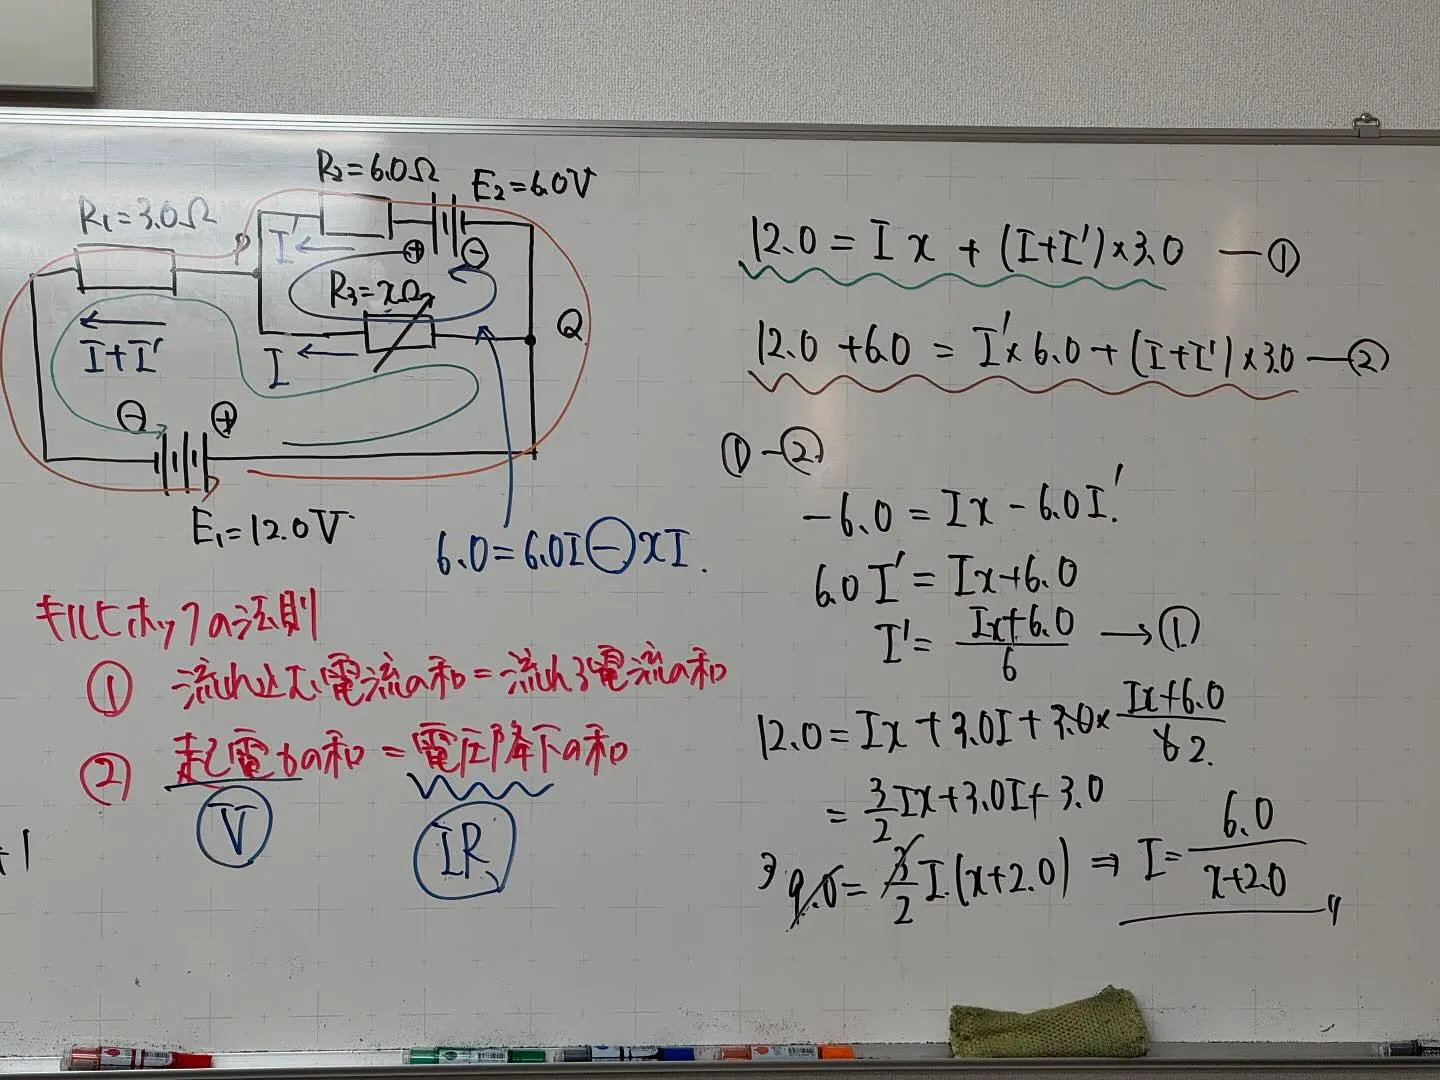 R₂=6.0Ω
E₂=6.0V
R₁=3.0Ω
P
I'
⊕
⊖
R₃=xΩ
Q
I+I'
I
⊖
⊕
E₁=12.0V
6.0=6.0I⊖xI.
キルヒホッフの法則
① 流れ込む電流の和=流れる電流の和
② 起電力の和=電圧降下の和
V
IR
+1
12.0=Ix+(I+I')×3.0 ―①
12.0+6.0=I'×6.0+(I+I')×3.0―②
①-②
-6.0=Ix-6.0I'.
6.0I'=Ix+6.0
I'=\frac{Ix+6.0}{6}→①
12.0=Ix+3.0I+3.0×\frac{Ix+6.0}{6 2.}
=\frac{3}{2}Ix+3.0I+3.0
3 9.0=\frac{3}{2}I.(x+2.0)⇒I=\frac{6.0}{x+2.0}〃